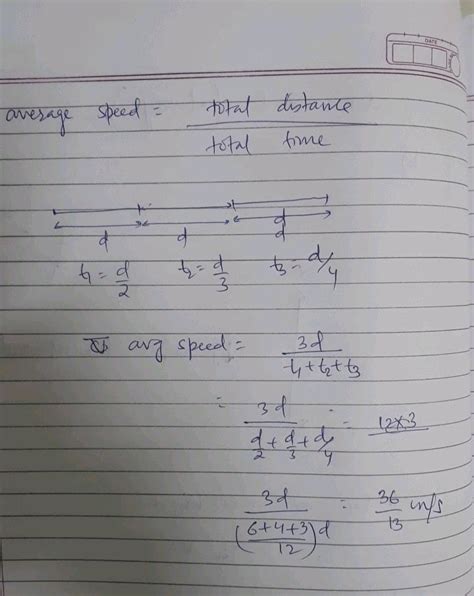 DATE
average speed = total distance / total time
d d d
d
t1 = d/2 t2 = d/3 t3 = d/4
avg speed = 3d / t1 + t2 + t3
= 3d / d/2 + d/3 + d/4 = 12×3
3d / (6+4+3 / 12)d = 36/13 m/s